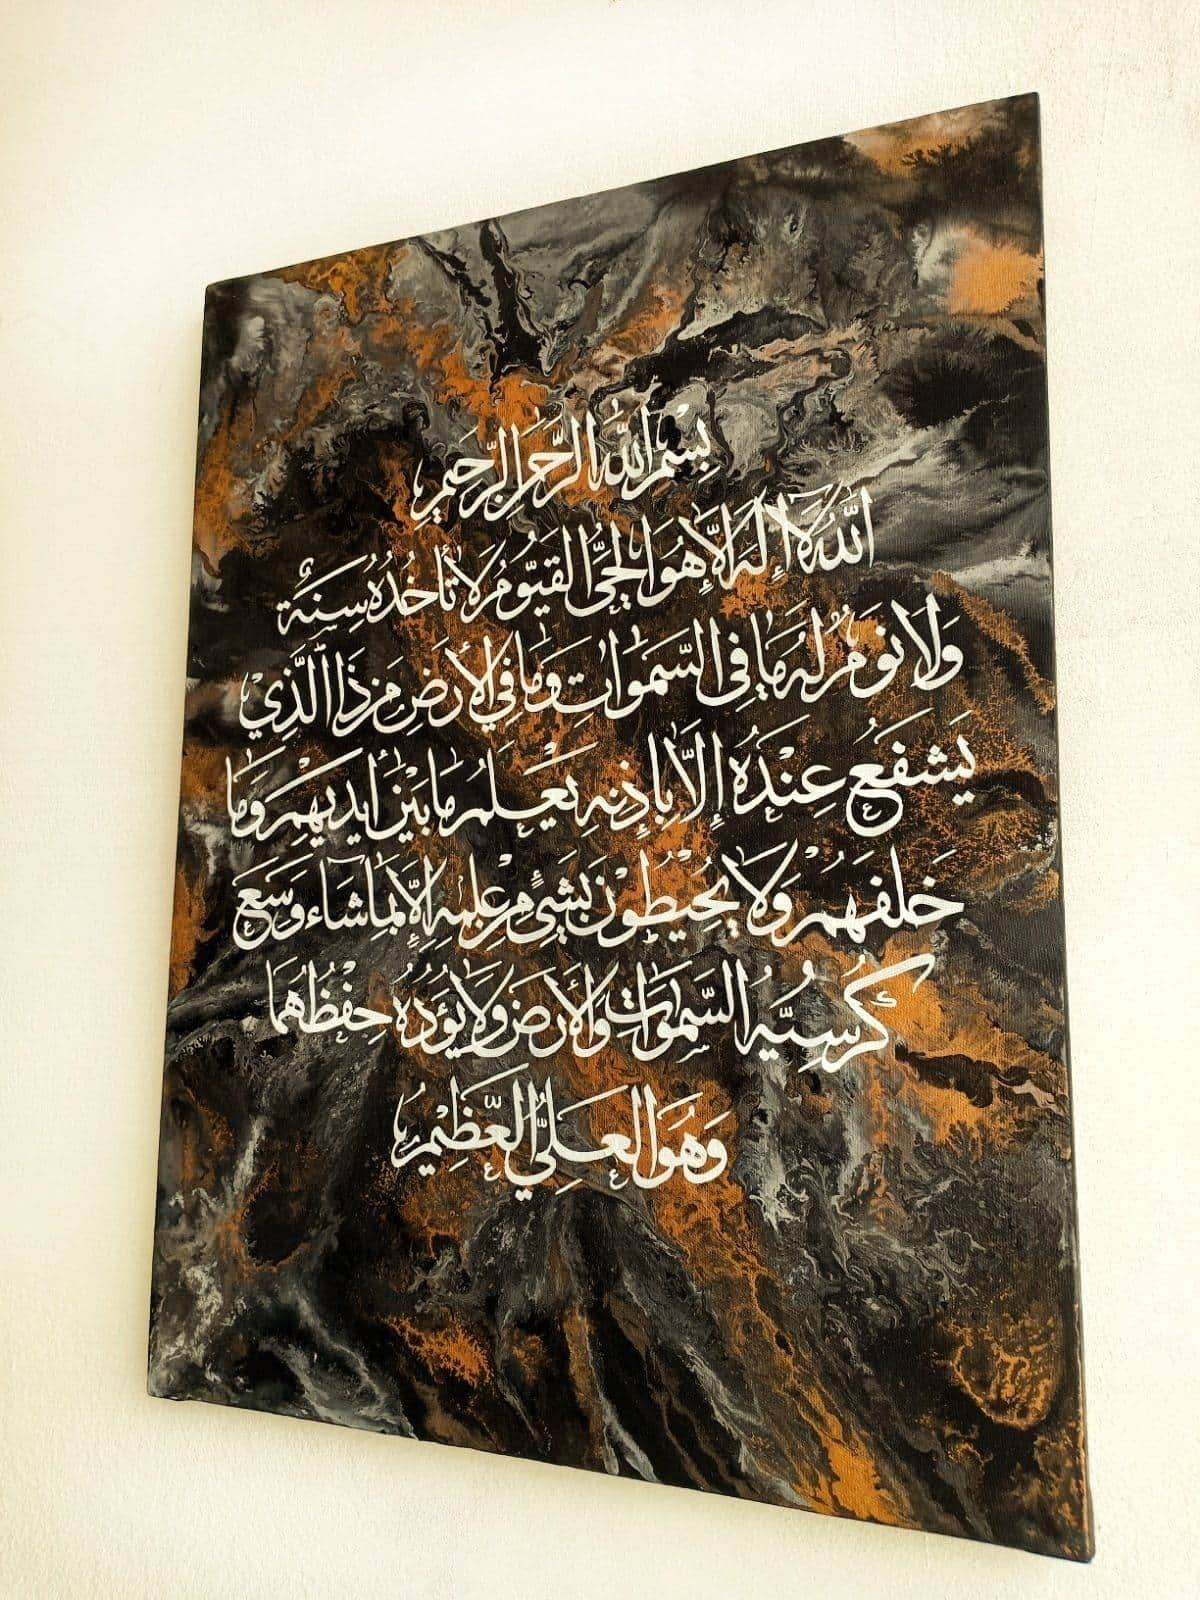 بِسْمِ اللَّهِ الرَّحْمَنِ الرَّحِيمِ
اللَّهُ لَا إِلَهَ إِلَّا هُوَ الْحَيُّ القَيُّومُ لَا تَأْخُذُهُ سِنَةٌ
وَلَا نَوْمٌ لَهُ مَا فِي السَّمَوَاتِ وَمَا فِي الأَرْضِ مَن ذَا الَّذِي
يَشْفَعُ عِنْدَهُ إِلَّا بِإِذْنِهِ يَعْلَمُ مَا بَيْنَ أَيْدِيهِمْ وَمَا
خَلْفَهُمْ وَلَا يُحِيطُونَ بِشَيْءٍ مِنْ عِلْمِهِ إِلَّا بِمَا شَاءَ وَسِعَ
كُرْسِيُّهُ السَّمَوَاتِ وَالأَرْضَ وَلَا يَؤُدُهُ حِفْظُهُمَا
وَهُوَ العَلِيُّ العَظِيمُ